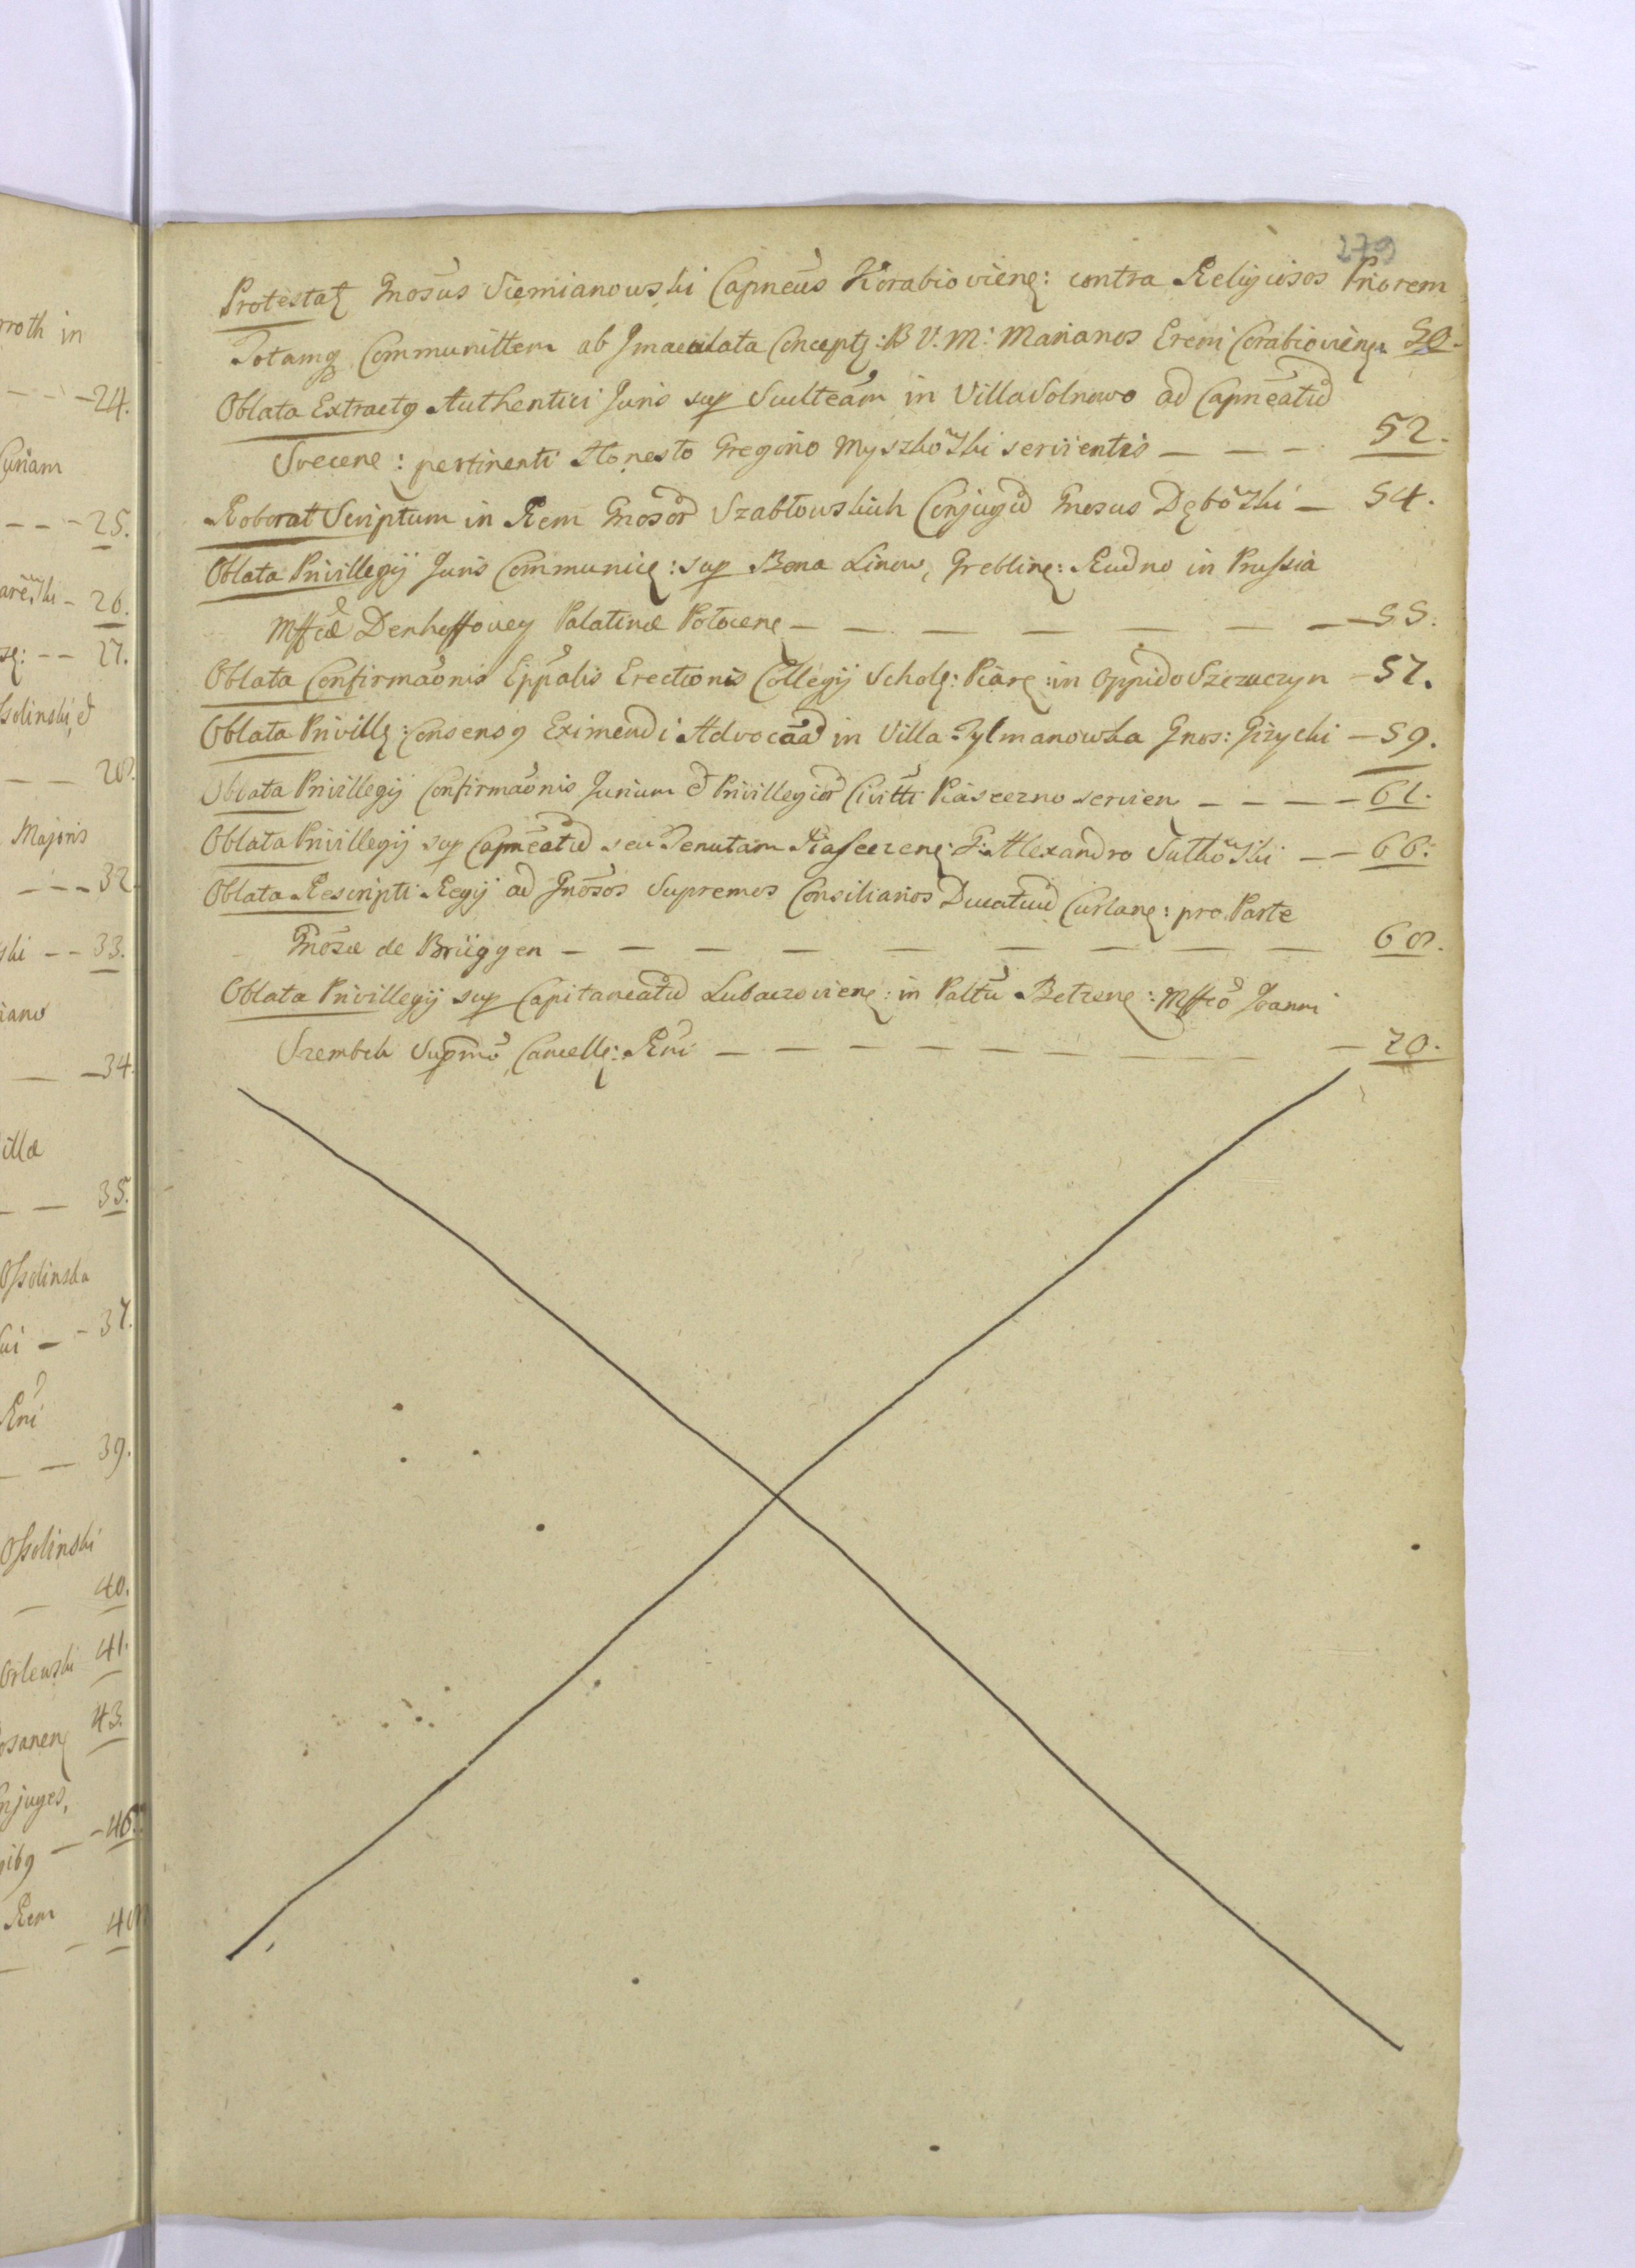 rroth in
24.
Curiam
25.
26.
27.
Ossolinski, et
28.
Majoris
32.
ski -- 33.
iano
34.
illa
35.
Ossolinska
37.
Rni
39.
Ossolinski
40.
Orlewski 41.
osanen 43.
njuges,
46.
Rem
48.
279
Protestatę Gnosus Siemianowski Capneus Korabioviene: contra Religiosos Priorem
Totamq Communittem ab Jmaculata Conceptę: B V. M: Marianos Eremi Corabioviene 50.
Oblata Extractq Authentici Juris sup Sculteam in Villa Solnowo ad Capneatu
Svecene: pertinenti Honesto Gregorio Myszkoski servientis — — — 52.
Roborat Scriptum in Rem Gnosor Szabłowskich Conjugu Gnosus Dęboski — 54.
Oblata Privillegij Juris Communicę: sup Bona Linow, Greblinę: Rudno in Prussia
Mffcæ Denhoffowey Palatinæ Połocene — — — — — — — 55.
Oblata Confirmaonis Eppalis Erectionis Collegij Scholę: Piarę: in Oppido Szczuczyn — 57.
Oblata Privillę: Consensq Eximendi Advocaad in Villa Tylmanowska Gnos: Giżycki — 59.
Oblata Privillegij Confirmaonis Jurium et Privillegior Civitti Piaseczno servien — — — — 61.
Oblata Privillegij sup Capneatu seu Tenutam Piaseczenę: G: Alexandro Sutkoski — — 66.
Oblata Rescripti Regij ad Gnosos Supremos Consiliarios Ducatuu Curlanę: pro Parte
Gnosæ de Brüggen — — — — — — — — — — 68.
Oblata Privillegij sup Capitaneatu Lubaczovienę: in Paltu Belzenę: Mffco Joanni
Szembek Supmo Cancellę: Rni — — — — — — — — 70.